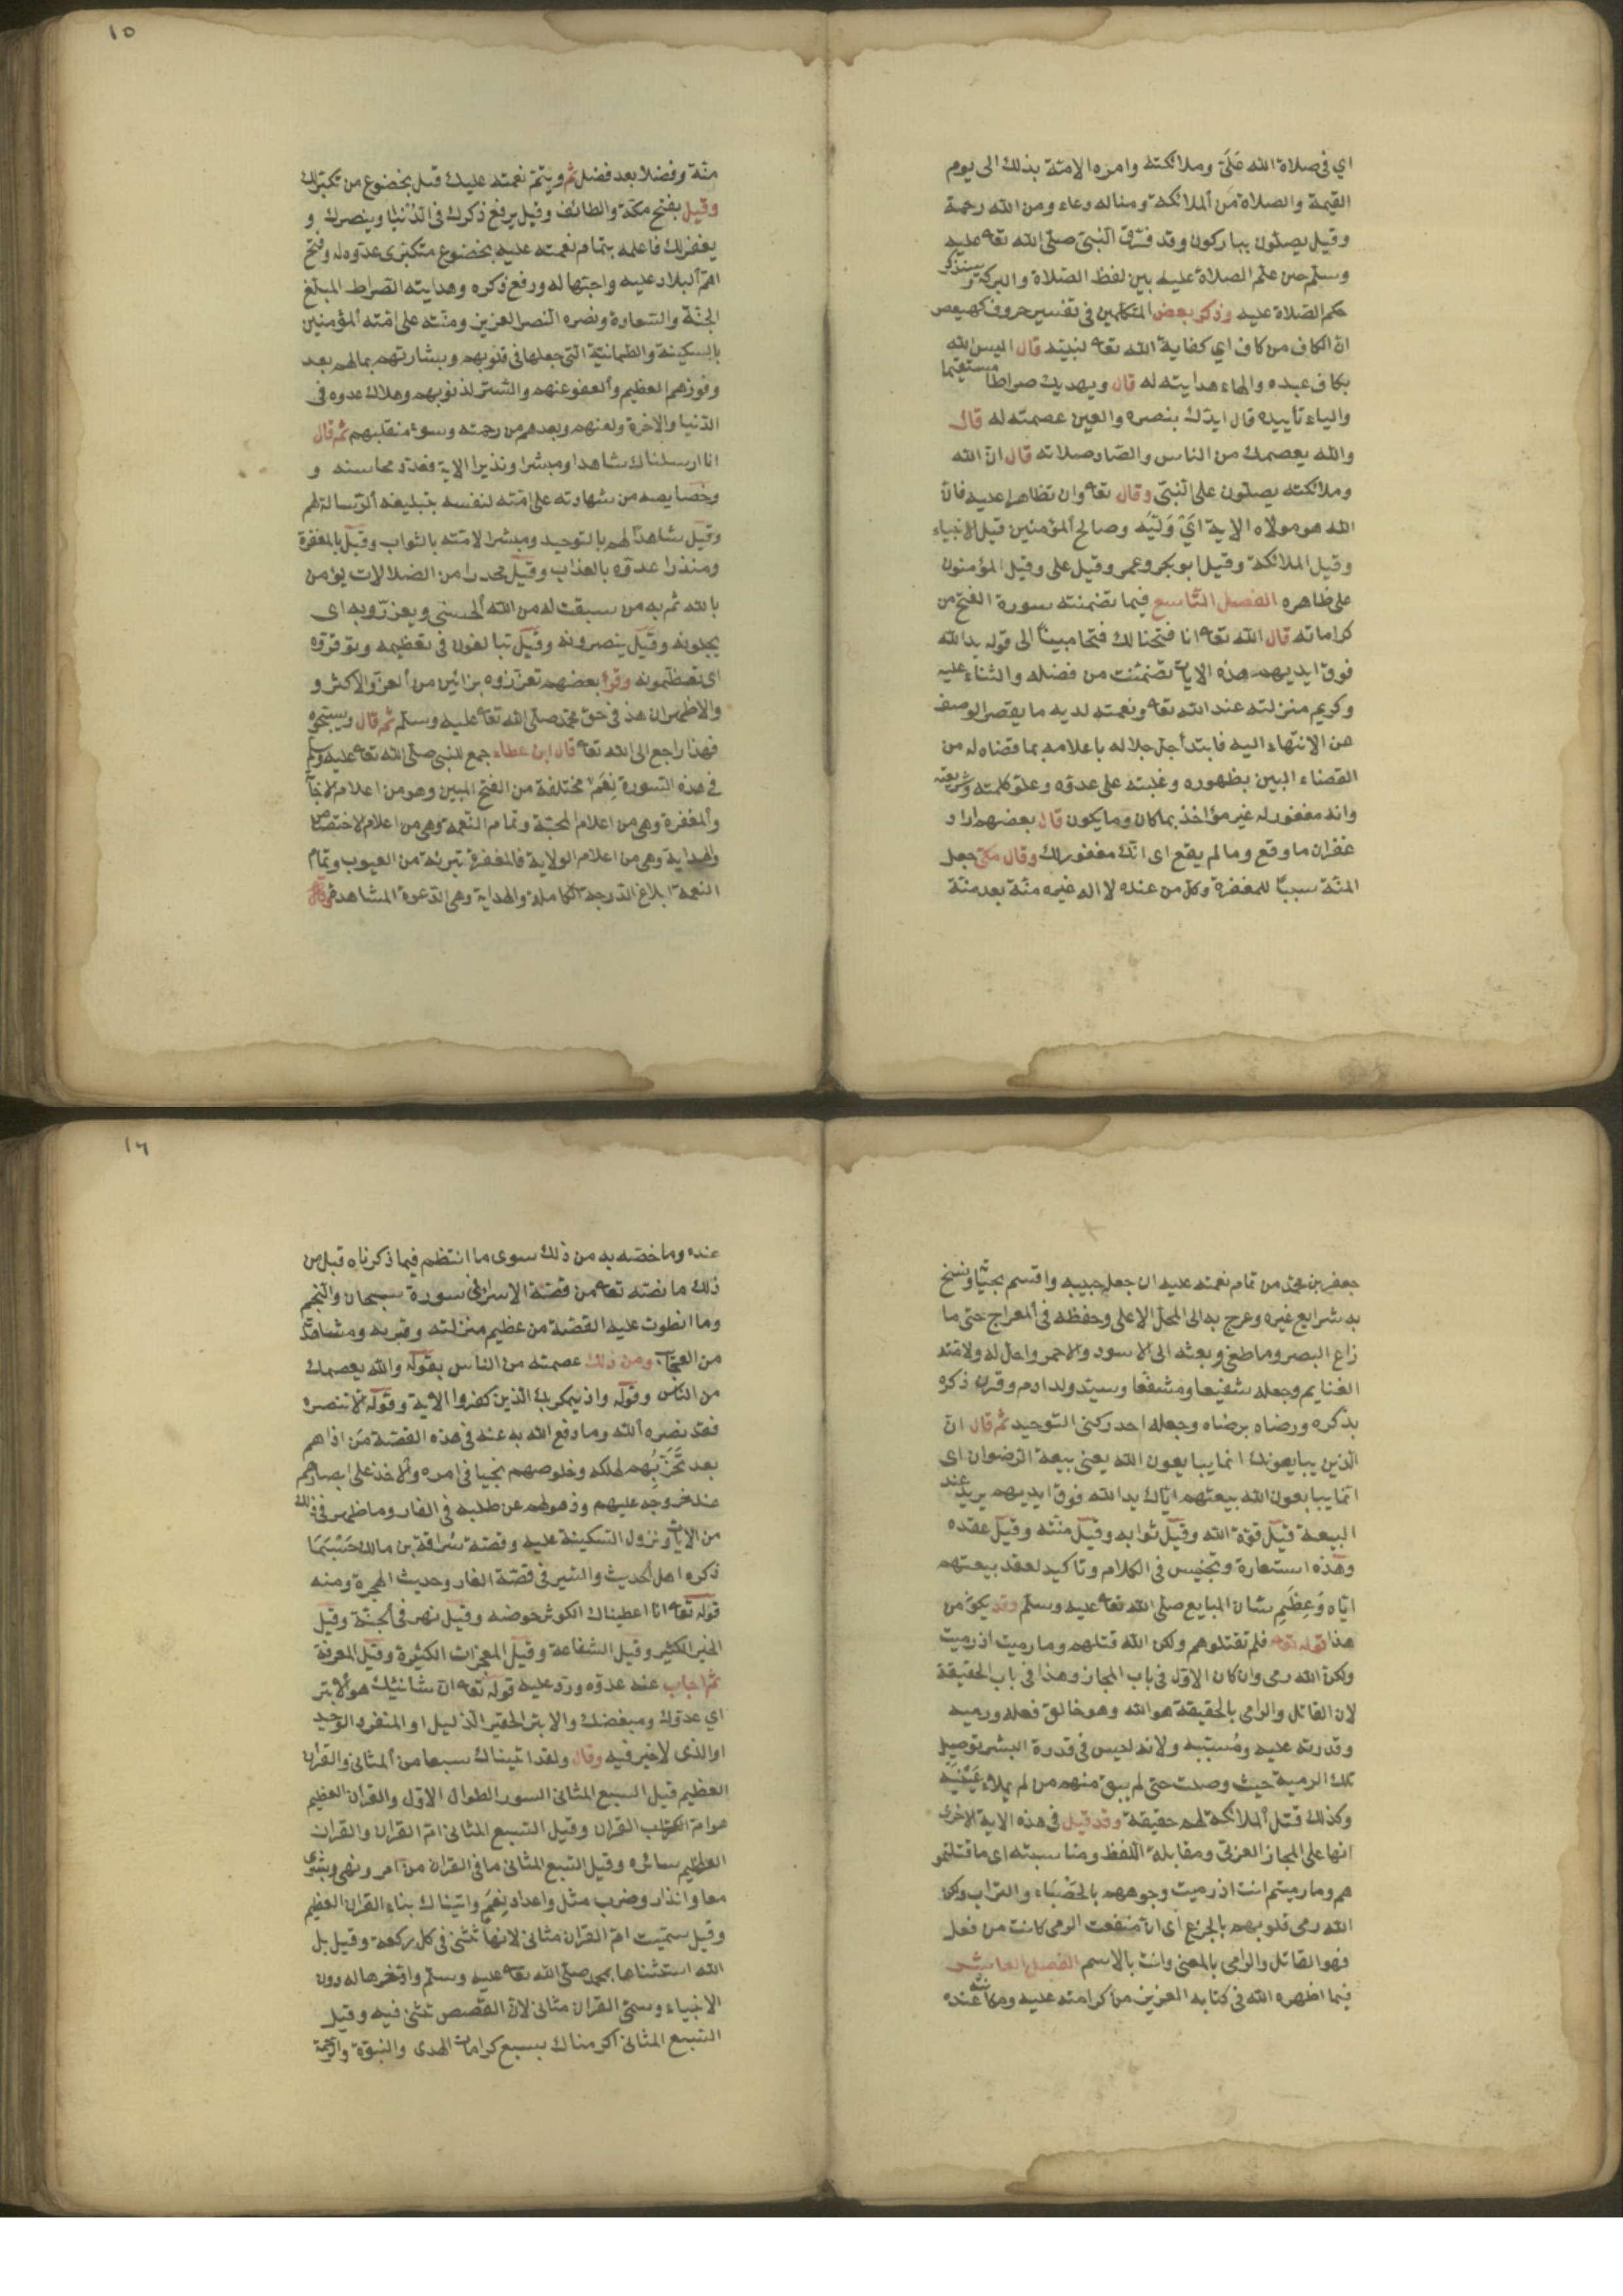 اي في صلاة الله عَلَىَّ وملائكته وامره الامة بذلك الى يوم
القيمة والصلاة من الملائكة ومنا له دعاء ومن الله رحمة
وقيل يصلون يباركون وقد فرّق النبى صلى الله تعا عليه
وسلم حين علم الصلاة عليه بين لفظ الصّلاة والبركة وسنذكر
حكم الصّلاة عليه وذكر بعض المتكلمين في تفسير حروف كهيعص
ان الكاف من كاف اي كفاية الله تعا لنبيه قال اليس الله
بكاف عبده والهاء هدايته له قال ويهديك صراطا مستقيما
والياء تأييده قال ايدك بنصره والعين عصمته له قال
والله يعصمك من الناس والصّاد صلاته قال ان الله
وملائكته يصلون على النبّى وقال تعا وان تظاهرا عليه فان
الله هو مولاه الاية اىْ وَلَيّه وصالح المؤمنين قيل الانبياء
وقيل الملائكة وقيل ابو بكر وعمر وقيل على وقيل المؤمنون
على ظاهره الفصل التاسع فيما تضمنته سورة الفتح من
كراماته قال الله تعا انا فتحنا لك فتحا مبينا الى قوله يد الله
فوق ايديهم هذه الايات تضمنت من فضله والثناء عليه
وكريم منزلته عند الله تعا ونعمته لديه ما يقصر الوصف
عن الانتهاء اليه فابتدأ جل جلاله باعلامه بما قضاه له من
القضاء البين بظهوره وغلبته على عدوه وعلو كلمته وشريعته
وانه مغفور له غير مؤاخذ بما كان وما يكون قال بعضهم اراد
غفران ما وقع وما لم يقع اى انك مغفور لك وقال مكى جعل
المنّة سببًا للمغفرة وكل من عنده لا اله غيره منّة بعد منّة
١٥
منّة وفضلا بعد فضل ثم ويتمّ نعمته عليك قيل بخضوع من تكبر لك
وقيل بفتح مكة والطائف وقيل يرفع ذكرك في الدّنيا وينصرك و
يغفر لك فاعلمه بتمام نعمته عليه بخضوع متكبرى عدوه له وفتح
اهمّ البلاد عليه واحبّها له ورفع ذكره وهدايته الصّراط المبلّغ
الجنّة والسّعادة ونصره النّصر العزيز ومنّته على امّته المؤمنين
بالسكينة والطمانينة التي جعلها في قلوبهم وبشارتهم بمالهم بعد
وفوزهم العظيم والعفو عنهم والستر لذنوبهم وهلاك عدوه في
الدّنيا والاخرة ولعنهم وبعدهم من رحمته وسوء منقلبهم ثم قال
انا ارسلناك شاهدا ومبشرا ونذيرا الاية فعدد محاسنه و
وخصايصه من شهادته على امّته لنفسه بتبليغه الرّسالة لهم
وقيل شاهدًا لهم بالتوحيد ومبشرا لامّته بالثواب وقيل بالمغفرة
ومنذرا عدوّه بالعذاب وقيل محذرا من الضلالات ليؤمن
بالله ثم به من سبقت له من الله الحسنى ويعزّروه اى
يجلونه وقيل ينصرونه وقيل تبالغون في تعظيمه ويوقروه
اى تعظّمونه وقرأ بعضهم تعززوه بزائين من العزّ والاكثر و
والاظهر ان هذا في حق محمد صلى الله تعا عليه وسلم ثم قال ويسبحوه
فهذا راجع الى الله تعا قال ابن عطاء جمع للنبى صلى الله تعا عليه وسلم
في هذه السّورة نِعَمٌ مختلفة من الفتح المبين وهو من اعلام الاجابة
والمغفرة وهى من اعلام المحبّة وتمام النّعمة وهى من اعلام الاختصاص
والهداية وهى من اعلام الولاية فالمغفرة تبرئة من العيوب وتمام
النعمة ابلاغ الدّرجة الكاملة والهداية وهى الدّعوة الى المشاهدة وقال
جعفر بن محمد من تمام نعمته عليه ان جعله حبيبه واقسم بحياته ونسخ
به شرايع غيره وعرج به الى المحلّ الاعلى وحفظه في المعراج حتى ما
زاغ البصر وما طغى وبعثه الى الاسود والاحمر واحلّ له ولامّته
الغنايم وجعله شفيعا ومشفّعا وسيّد ولد ادم وقرن ذكره
بذكره ورضاه برضاه وجعله احد ركنى التوحيد ثم قال انّ
الذين يبايعونك انما يبايعون الله يعنى بيعة الرّضوان اى
انّما يبايعون الله ببيعتهم ايّاك يد الله فوق ايديهم يريد عند
البيعة قيل قوة الله وقيل ثوابه وقيل منّته وقيل عقده
وهذه استعارة وتجنيس في الكلام وتاكيد لعقد بيعتهم
ايّاه وَعِظَمِ شان المبايع صلى الله تعا عليه وسلم وقد يكون من
هذا قوله تعا فلم تقتلوهم ولكن الله قتلهم وما رميت اذ رميت
ولكن الله رمى وان كان الاوّل في باب المجاز وهذا في باب الحقيقة
لان القاتل والرامى بالحقيقة هو الله وهو خالق فعله ورميه
وقدرته عليه ومُسبّبه ولانه ليس في قدرة البشر توصيل
تلك الرمية حيث وصلت حتى لم يبق منهم من لم يملاء عَيْنَيه
وكذلك قتل الملائكة لهم حقيقة وقد قيل في هذه الاية الاخرى
انها على المجاز العربى ومقابلة اللّفظ ومناسبته اى ما قتلتمو
هم وما رميتهم انت اذ رميت وجوههم بالحَصْبَاء والتراب ولكن
الله رمى قلوبهم بالجزع اى ان منفعت الرمى كانت من فعل
فهو القاتل والرّامى بالمعنى وانت بالاسم الفصل العاشر
فيما اظهره الله في كتابه العزيز من كرامته عليه ومكانته عنده
١٦
عنده وما خصّه به من ذلك سوى ما انتظم فيما ذكرناه قبل من
ذلك ما نصّه تعا من قصّة الاسراء في سورة سبحان والنّجم
وما انطوت عليه القصّة من عظيم منزلته وقربه ومشاهدته
من العجائب ومن ذلك عصمته من الناس بقوله والله يعصمك
من النّاس وقوله واذ يمكر بك الّذين كفروا الاية وقوله الا تنصروه
فقد نصره الله وما دفع الله به عنه في هذه القصّة من اذاهم
بعد تَحَزّبِهم لهلكه وخلوصهم نجيا في امره والاخذ على ابصارهم
عند خروجه عليهم وذهولهم عن طلبه في الغار وما ظهر في ذلك
من الايات ونزول السّكينة عليه وقصّة سُراقة بن مالك حَسْبَمَا
ذكره اهل الحديث والسّير في قصّة الغار وحديث الهجرة ومنه
قوله تعا انا اعطيناك الكوثر حوضه وقيل نهر في الجنّة وقيل
الخير الكثير وقيل الشفاعة وقيل المعجزات الكثيرة وقيل المعرفة
ثم اجاب عنه عدوّه وردّ عليه قوله تعا انّ شانئك هو الابتر
اي عدوّك ومبغضك والابتر الحقير الذليل او المنفرد الوحيد
او الذى لا خير فيه وقال ولقد اتيناك سبعا من المثانى والقران
العظيم قيل السبع المثانى السور الطوال الاوّل والقران العظيم
هو امّ القران وقيل السّبع المثانى امّ القران والقران
العظيم سائره وقيل السّبع المثانى ما في القران من امر ونهى وبشرى
معا وانذار وضرب مثل واعداد نِعَمٍ واتيناك بناء القران العظيم
وقيل سمّيت امّ القران مثانى لانّها تثنى في كل ركعة وقيل بل
الله استثناها بمحمّد صلى الله تعا عليه وسلم وادّخرها له دون
الانبياء وسمّى القران مثانى لانّ القصص تثنى فيه وقيل
السّبع المثانى اكرمناك بسبع كرامات الهدى والنبوّة والرّحمة